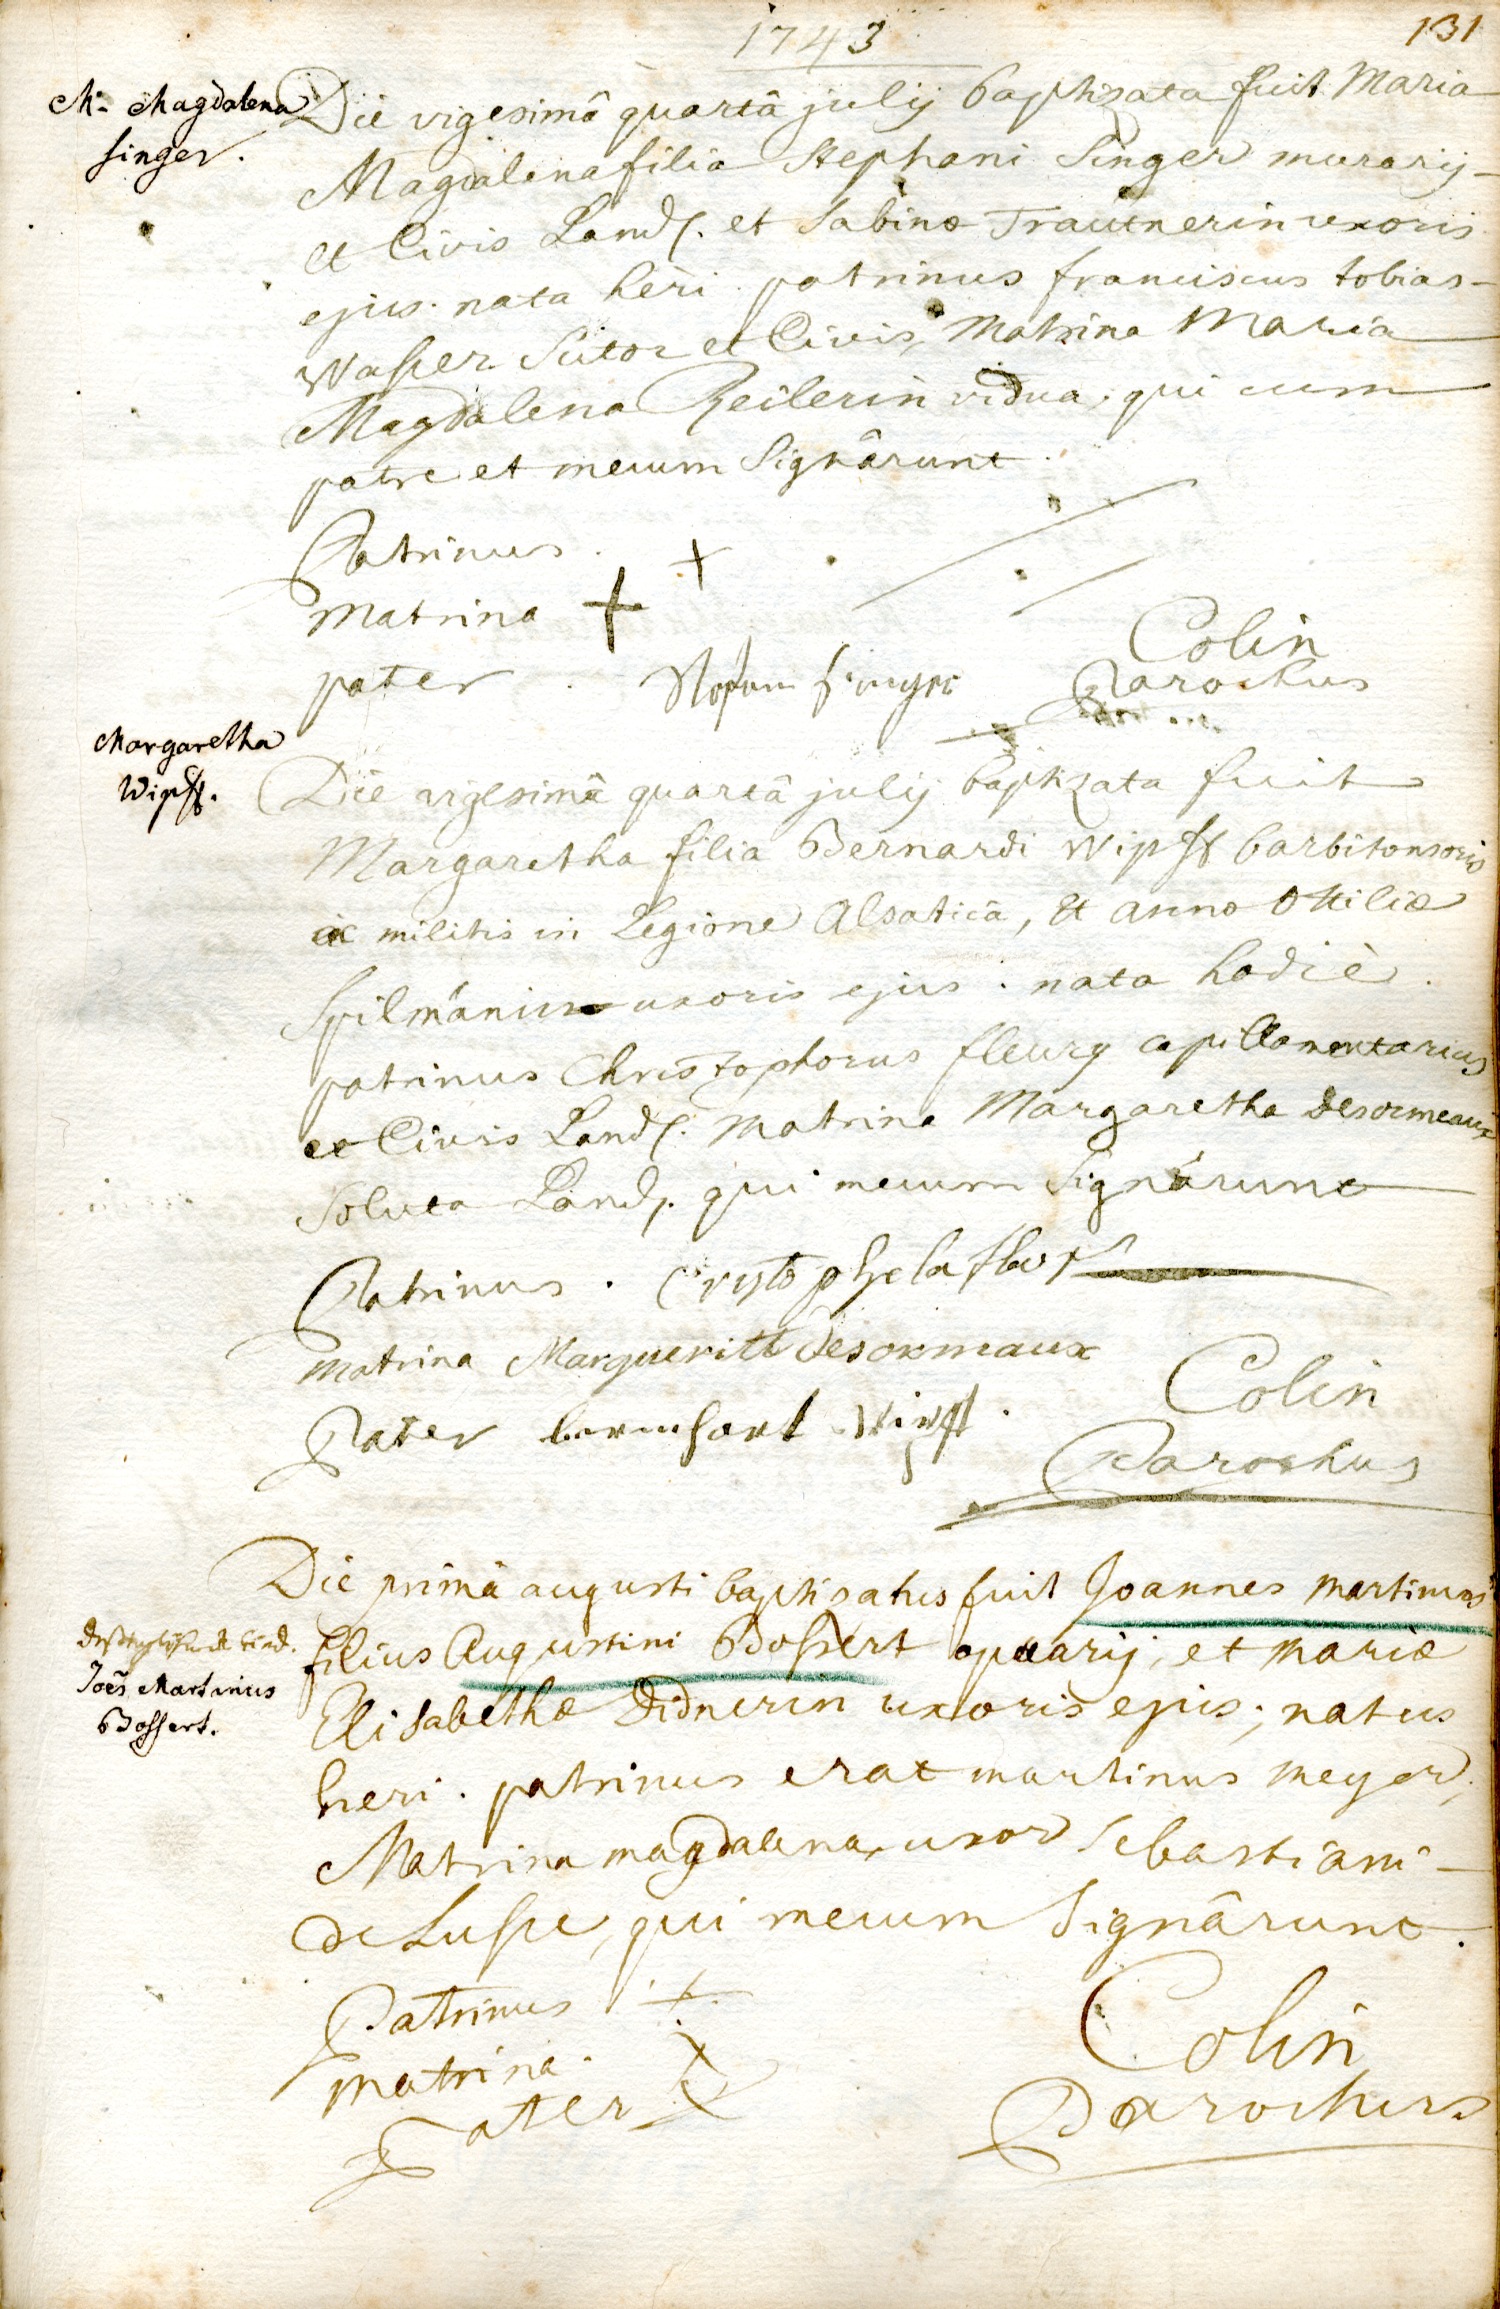 1743
131
M. Magdalena
singer.
Die vigesimâ quartâ julij baptizata fuit Maria
Magdalena filia Stephani Singer murarij
et Civis Land. et Sabinæ Trautnerin uxoris
ejus. nata heri. patrinus franciscus tobias
Wasser Sutor et Civis, Matrina Maria
Magdalena Zeilerin vidua, qui cum
patre et mecum Signârunt.
Patrinus. +
Matrina +
pater Singer
Colin
Parochus
Margaretha
Wipff.
Die vigesimâ quartâ julij baptizata fuit
Margaretha filia Bernardi Wipff barbitonsoris
ac militis in Legione Alsatica, et anna Ottiliæ
Spilmänin uxoris ejus. nata hodiè.
patrinus Christophorus fleury capillamentarius
et Civis Land. Matrina Margaretha Desormeaux
Soluta Land. qui mecum Signârunt
Patrinus.
matrina Margueritt desormeaux
Pater bernhart Wipff.
Colin
Parochus
Joes Martinus
Bossert.
Die primâ augusti baptisatus fuit Joannes Martinus
filius Augustini Bossert operarij, et Mariæ
Elisabethæ Didnerin uxoris ejus; natus
heri. patrinus erat martinus meyer,
Matrina magdalena, uxor Sebastiani
de Lusse, qui mecum Signârunt.
Patrinus +
matrina. X
Pater X
Colin
Parochus